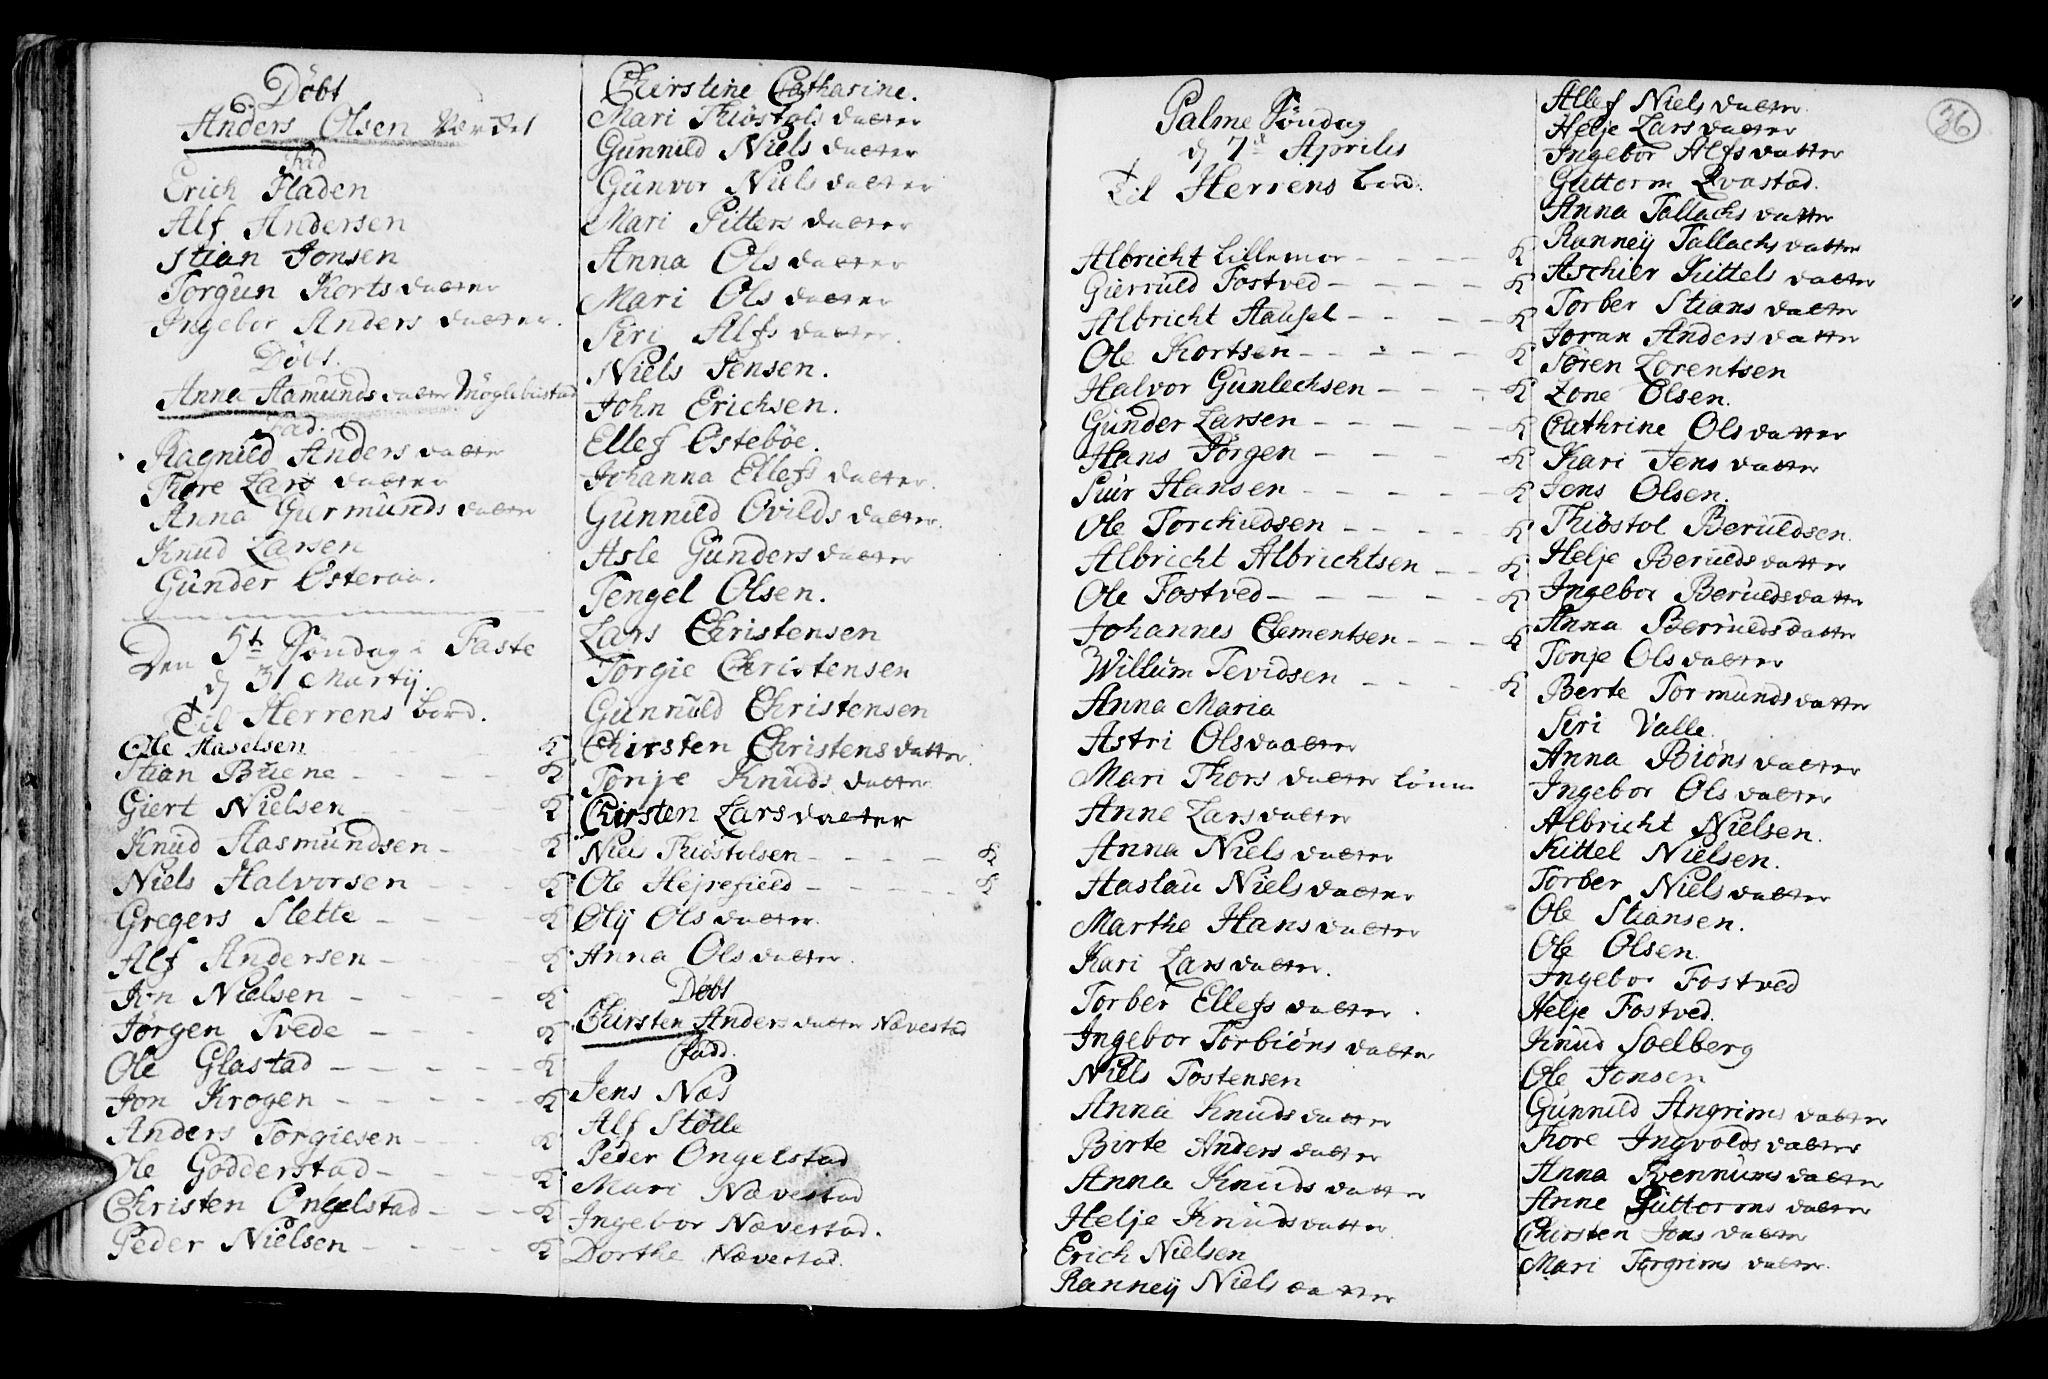 Döbt
Anders Olsen
Fad
Erich Staden
Alf Andersen
Stian Jonsen
Torgun Kortsdatter
Ingebor Andersdatter.
Döbt.
Anna Aamundsdatter Møglebustad
Fad.
Ragnild Andersdatter
Thore Larsdatter
Anna Giermundsdatter
Knud Larsen
Gunder Østeraa.
Den 5te Söndag i Faste
d 31 Martij.
Til Herrens bord.
Ole Aaselsen
Stian Buene - - - - K
Giert Nielsen - - - - K
Knud Aasmundsen - - - K
Niels Halvorsen - - - K
Gregers Slette - - - - K
Alf Andersen - - - - K
Jon Nielsen - - - - K
Jørgen Tvede - - - - K
Ole Glastad - - - - - K
Jon Krogen - - - - - K
Anders Torgiesen - - - K
Ole Godderstad - - - - K
Christen Ongelstad - - - K
Peder Nielsen - - - - K
Chirstine Catharine.
Mari Thiøstolsdatter
Gunnild Nielsdatter
Gunvor Nielsdatter
Mari Pittersdatter
Anna Olsdatter
Mari Olsdatter
Siri Alfsdatter.
Niels Jensen.
John Erichsen.
Ellef Østebøe.
Johanna Ellefsdatter.
Gunnild Ovildsdatter.
Asle Gundersdatter
Tengel Olsen.
Lars Christensen
Torgie Christensen
Gunnuld Christensen
Chirsten Christensdatter.
Tonje Knudsdatter
Chirsten Larsdatter
Niels Thiøstolsen - - - - K
Ole Hejrefield - - - - - K
Oly Olsdatter.
Anna Olsdatter.
Döbt
Chirsten Andersdatter Nævestad
Fadd.
Jens Næs
Alf Stølle
Peder Ongelstad
Mari Nævestad
Ingebor Nævestad.
Dorthe Nævestad.
36
Palme Söndag
d 7de Aprilis
Til Herrens bord.
Albricht Lillemor - - - - K
Gierruld Fostved - - - - K
Albricht - - - - K
Ole Kortsen - - - - - K
Halvor Gunlechsen - - - K
Gunder Larsen - - - - K
Hans Jörgen - - - - K
Siur Hansen - - - - - K
Ole Torchildsen - - - - K
Albricht Albrichtsen - - K
Ole Fostved - - - - - K
Johannes Clementsen - - - K
Willum Tevidsen - - - K
Anna Maria
Astri Olsdaatter
Mari Thorsdatter
Anne Larsdatter
Anna Nielsdatter
Aaslau Nielsdatter
Marthe Hansdatter
Kari Larsdatter.
Torber Ellefsdatter.
Ingebor Torbiønsdatter
Niels Tostensen
Anna Knudsdatter
Birte Andersdatter
Anna Knudsdatter
Helje Knudsdatter
Erich Nielsen
Ranney Nielsdatter
Allef Nielsdatter.
Helje Larsdatter
Ingebor Alfsdatter
Guttorm Qvastad.
Anna Tallachsdatter
Ranney Tallachsdatter
Aschier Kittelsdatter
Torber Stiansdatter
Joran Andersdatter
Søren Lorentsen
Lone Olsen.
Cathrine Olsdatter
Kari Jensdatter
Jens Olsen.
Thiøstol Beruldsen.
Helje Beruldsdatter
Ingebor Beruldsdatter
Anna Beruldsdatter
Tonje Olsdatter
Berte Tormundsdatter
Siri Valle.
Anna Biønsdatter
Ingebor Olsdatter
Albricht Nielsen.
Kittel Nielsen.
Torber Nielsdatter
Ole Stiansen.
Ole Olsen.
Ingebor Fostved
Helje Fostved.
Knud Soelberg
Ole Jonsen
Gunnild Angrimsdatter
Thore Ingvoldsdatter
Anna Svennumsdatter
Anne Guttormsdatter
Chirsten Jonsdatter
Mari Torgrimsdatter.